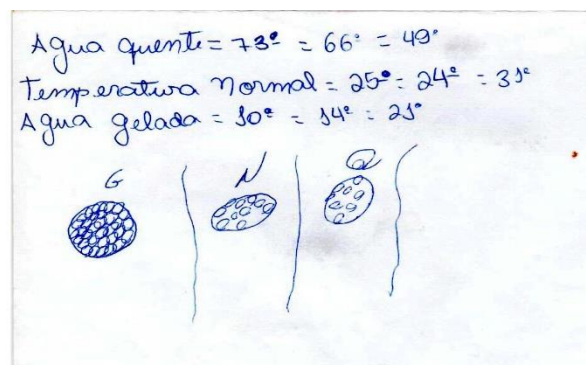 Agua quente = 73º = 66º = 49º
Temperatura Normal = 25º = 24º = 31º
Agua gelada = 10º = 14º = 21º
G N Q